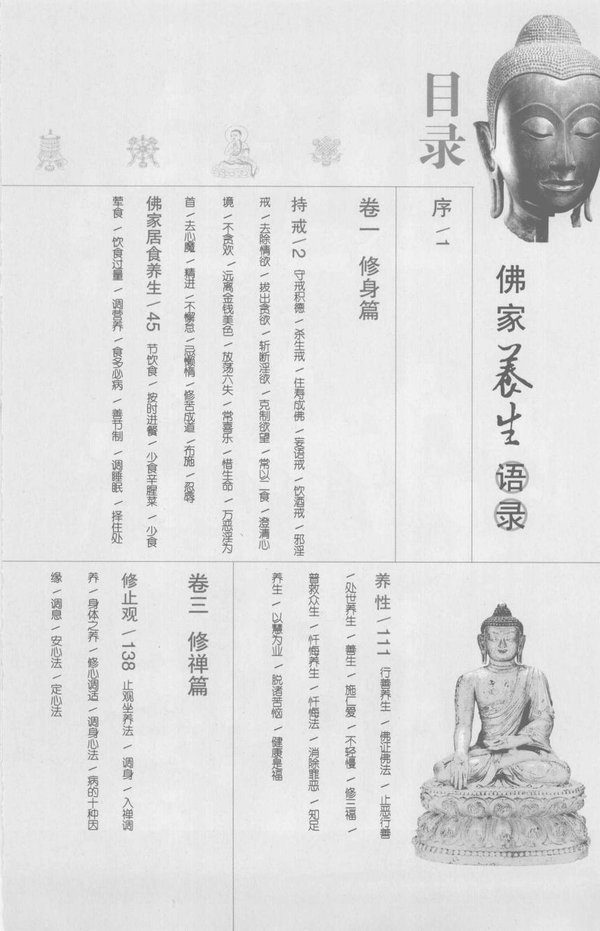 目录
佛家养生语录
序/1
卷一 修身篇
持戒/2 守戒积德/杀生戒/住寿成佛/妄语戒/饮酒戒/邪淫
戒/去除情欲/拔出贪欲/斩断淫欲/克制欲望/常以二食/澄清心
境/不贪欢/远离金钱美色/放荡六失/常喜乐/惜生命/万恶淫为
首/去心魔/精进/不懈怠/忌懒惰/修苦成道/布施/忍辱
佛家居食养生/45 节饮食/按时进餐/少食辛腥菜/少食
荤食/饮食过量/调营养/食多必病/善节制/调睡眠/择住处
养性/111 行善养生/佛证佛法/止恶行善
/处世养生/善生/施仁爱/不轻慢/修三福/
普救众生/忏悔养生/忏悔法/消除罪恶/知足
养生/以慧为业/脱诸苦恼/健康是福
卷三 修禅篇
修止观/138 止观坐养法/调身/入禅调
养/身体之养/修心调适/调身心法/病的十种因
缘/调息/安心法/定心法